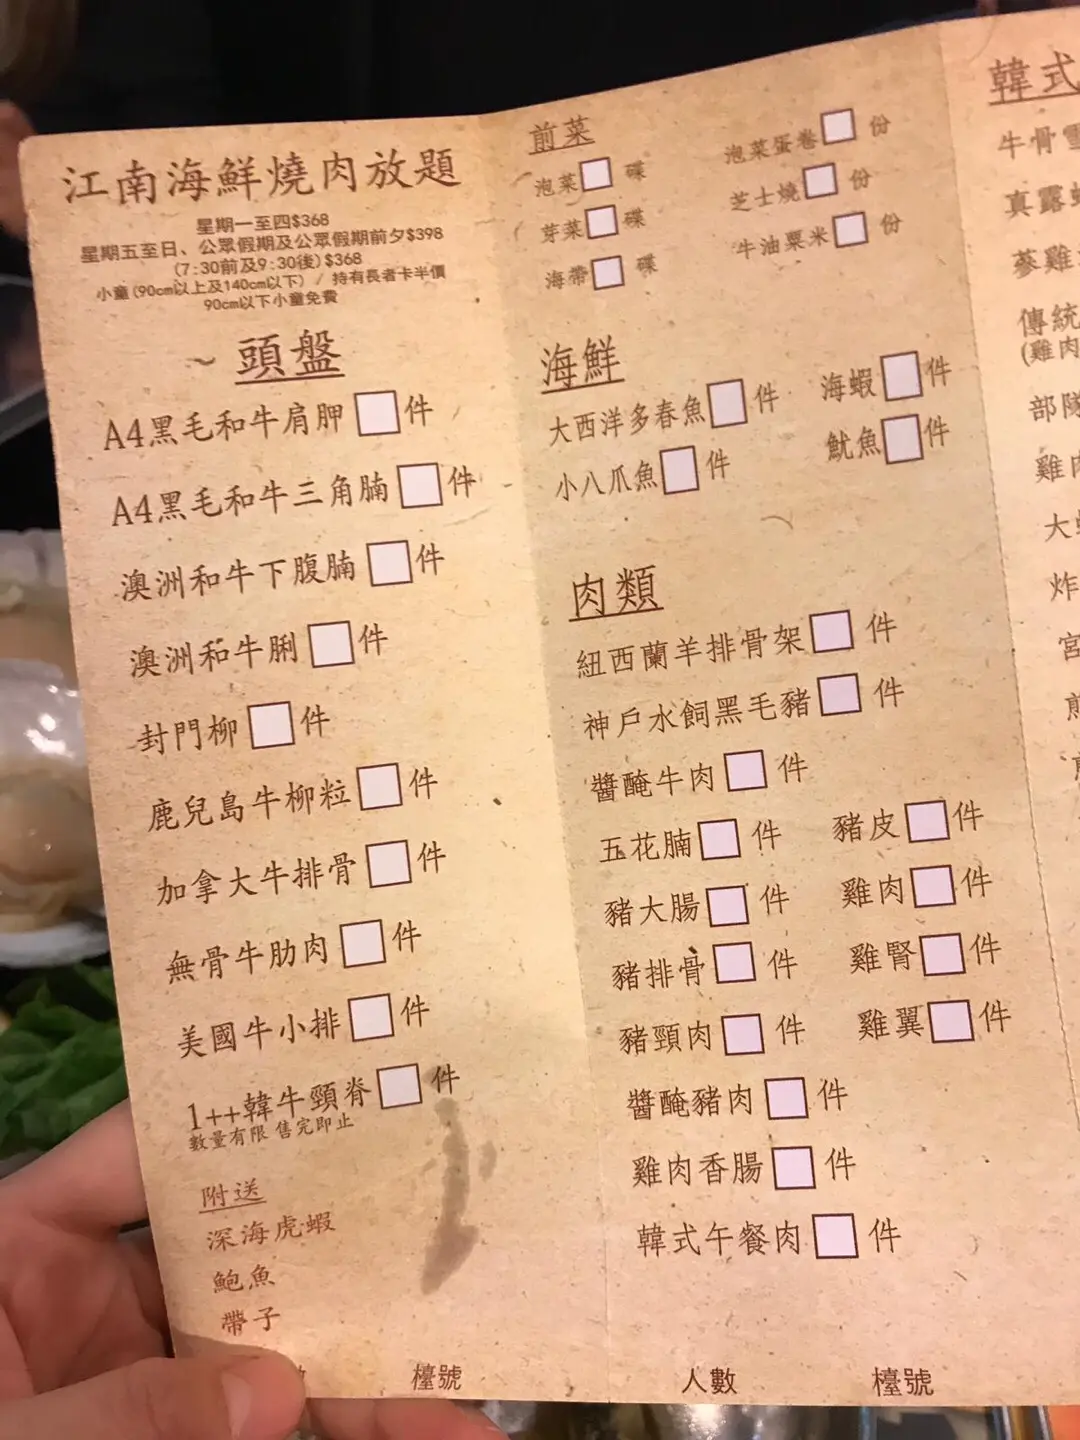 江南海鮮燒肉放題
星期一至四$368
星期五至日、公眾假期及公眾假期前夕$398
(7:30前及9:30後)$368
小童(90cm以上及140cm以下) / 持有長者卡半價
90cm以下小童免費
~ 頭盤
A4黑毛和牛肩胛 件
A4黑毛和牛三角腩 件
澳洲和牛下腹腩 件
澳洲和牛脷 件
封門柳 件
鹿兒島牛柳粒 件
加拿大牛排骨 件
無骨牛肋肉 件
美國牛小排 件
1++韓牛頸脊 件
數量有限 售完即止
附送
深海虎蝦
鮑魚
帶子
檯號
前菜
泡菜 碟 泡菜蛋卷 份
芽菜 碟 芝士燒 份
海帶 碟 牛油粟米 份
海鮮
大西洋多春魚 件 海蝦 件
小八爪魚 件 魷魚 件
肉類
紐西蘭羊排骨架 件
神戶水飼黑毛豬 件
醬醃牛肉 件
五花腩 件 豬皮 件
豬大腸 件 雞肉 件
豬排骨 件 雞腎 件
豬頸肉 件 雞翼 件
醬醃豬肉 件
雞肉香腸 件
韓式午餐肉 件
人數 檯號
韓式
牛骨
真露
蔘雞
傳統
(雞肉
部隊
雞肉
大
炸
宮
煎